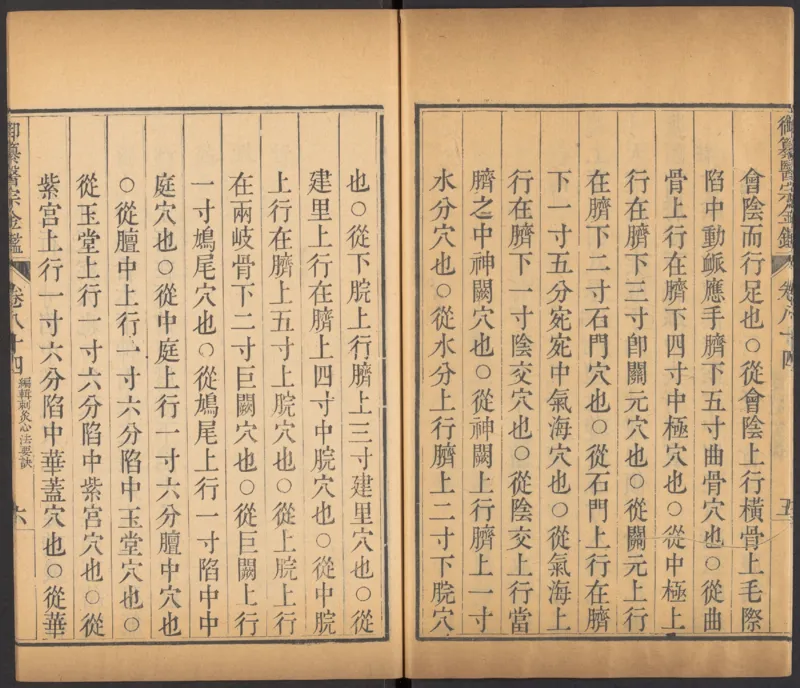 會陰而行足也○從會陰上行橫骨上毛際
陷中動脈應手臍下五寸曲骨穴也○從曲
骨上行在臍下四寸中極穴也○從中極上
行在臍下三寸卽關元穴也○從關元上行
在臍下二寸石門穴也○從石門上行在臍
下一寸五分宛宛中氣海穴也○從氣海上
行在臍下一寸陰交穴也○從陰交上行當
臍之中神闕穴也○從神闕上行臍上一寸
水分穴也○從水分上行臍上二寸下脘穴
也○從下脘上行臍上三寸建里穴也○從
建里上行在臍上四寸中脘穴也○從中脘
上行在臍上五寸上脘穴也○從上脘上行
在兩岐骨下二寸巨闕穴也○從巨闕上行
一寸鳩尾穴也○從鳩尾上行一寸陷中中
庭穴也○從中庭上行一寸六分膻中穴也
○從膻中上行一寸六分陷中玉堂穴也○
從玉堂上行一寸六分陷中紫宮穴也○從
紫宮上行一寸六分陷中華蓋穴也○從華
御纂醫宗金鑑 卷八十四 編輯刺灸心法要訣 六